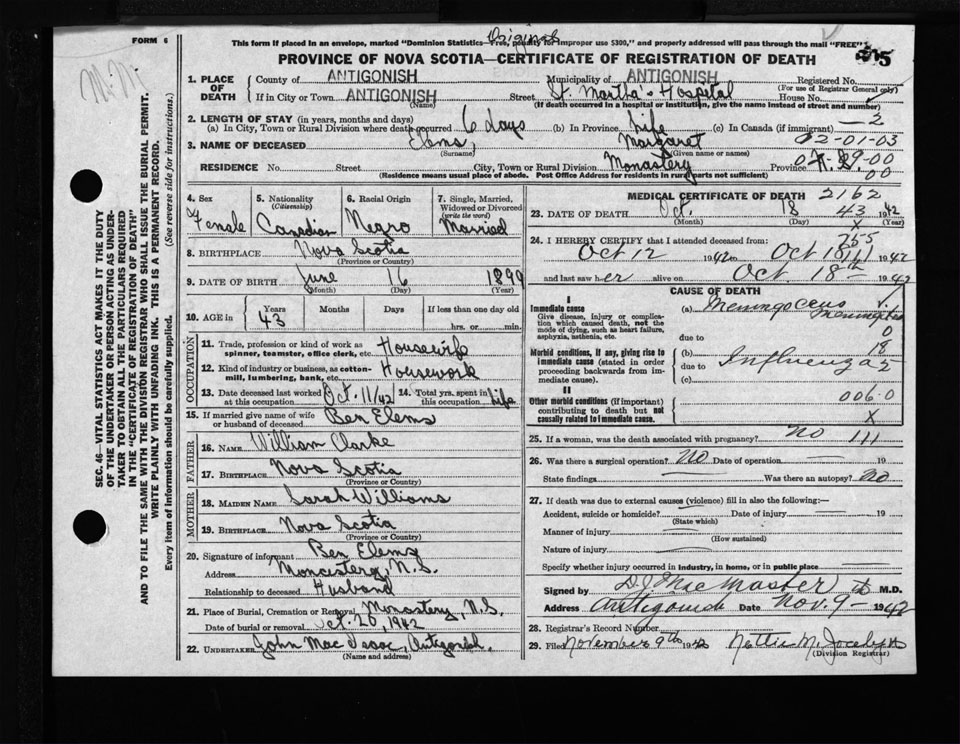 Original
FORM 6
This form if placed in an envelope, marked "Dominion Statistics—Free, penalty for improper use $300," and properly addressed will pass through the mail "FREE"
PROVINCE OF NOVA SCOTIA—CERTIFICATE OF REGISTRATION OF DEATH
1. PLACE OF DEATH
County of ANTIGONISH Municipality of ANTIGONISH Registered No.
(For use of Registrar General only)
If in City or Town ANTIGONISH Street St. Martha's Hospital House No.
(Name) (If death occurred in a hospital or institution, give the name instead of street and number)
2. LENGTH OF STAY (in years, months and days)
(a) In City, Town or Rural Division where death occurred 6 days (b) In Province Life (c) In Canada (if immigrant) — 2
02-01-03
3. NAME OF DECEASED Elms, Margaret
(Surname) (Given name or names)
RESIDENCE No. Street City, Town or Rural Division Monastery Province N.S.
(Residence means usual place of abode. Post Office Address for residents in rural parts not sufficient)
00
SEC. 46—VITAL STATISTICS ACT MAKES IT THE DUTY
OF THE UNDERTAKER OR PERSON ACTING AS UNDER-
TAKER TO OBTAIN ALL THE PARTICULARS REQUIRED
IN THE "CERTIFICATE OF REGISTRATION OF DEATH"
AND TO FILE THE SAME WITH THE DIVISION REGISTRAR WHO SHALL ISSUE THE BURIAL PERMIT.
WRITE PLAINLY WITH UNFADING INK. THIS IS A PERMANENT RECORD.
Every item of information should be carefully supplied. (See reverse side for instructions.)
4. Sex Female
5. Nationality (Citizenship) Canadian
6. Racial Origin Negro
7. Single, Married, Widowed or Divorced (write the word) Married
8. BIRTHPLACE Nova Scotia
(Province or Country)
9. DATE OF BIRTH June 16 1899
(Month) (Day) (Year)
10. AGE in Years Months Days If less than one day old
43 hrs. or min.
OCCUPATION
11. Trade, profession or kind of work as spinner, teamster, office clerk, etc. Housewife
12. Kind of industry or business, as cotton-mill, lumbering, bank, etc. Housework
13. Date deceased last worked at this occupation Oct. 11/42 14. Total yrs. spent in this occupation Life
15. If married give name of wife or husband of deceased Ben Elems
FATHER
16. NAME William Clarke
17. BIRTHPLACE Nova Scotia
(Province or Country)
MOTHER
18. MAIDEN NAME Sarah Williams
19. BIRTHPLACE Nova Scotia
(Province or Country)
20. Signature of informant Ben Elems
Address Monastery, N.S.
Relationship to deceased Husband
21. Place of Burial, Cremation or Removal Monastery, N.S.
Date of burial or removal Oct. 20, 1942
22. UNDERTAKER John Mac Isaac, Antigonish.
(Name and address)
MEDICAL CERTIFICATE OF DEATH 2162
23. DATE OF DEATH Oct. 18 43 1942
(Month) (Day) (Year)
24. I HEREBY CERTIFY that I attended deceased from:
Oct 12 1942 to Oct 18 1942
and last saw her alive on Oct 18th 1942
CAUSE OF DEATH
I
Immediate cause
Give disease, injury or complication which caused death, not the mode of dying, such as heart failure, asphyxia, asthenia, etc.
(a) Meningoccus Meningitis
due to
Morbid conditions, if any, giving rise to immediate cause (stated in order proceeding backwards from immediate cause).
(b) Influenza
due to
(c)
II
Other morbid conditions (if important) contributing to death but not causally related to immediate cause.
006.0
X
25. If a woman, was the death associated with pregnancy? No 111
26. Was there a surgical operation? No Date of operation — 19
State findings — Was there an autopsy? No
27. If death was due to external causes (violence) fill in also the following:—
Accident, suicide or homicide? Date of injury 19
(State which)
Manner of injury
(How sustained)
Nature of injury
Specify whether injury occurred in industry, in home, or in public place
Signed by D. J. MacMaster M.D.
Address Antigonish Date Nov. 9 — 1942
28. Registrar's Record Number
29. Filed November 9th 1942 Nettie M.
(Division Registrar)